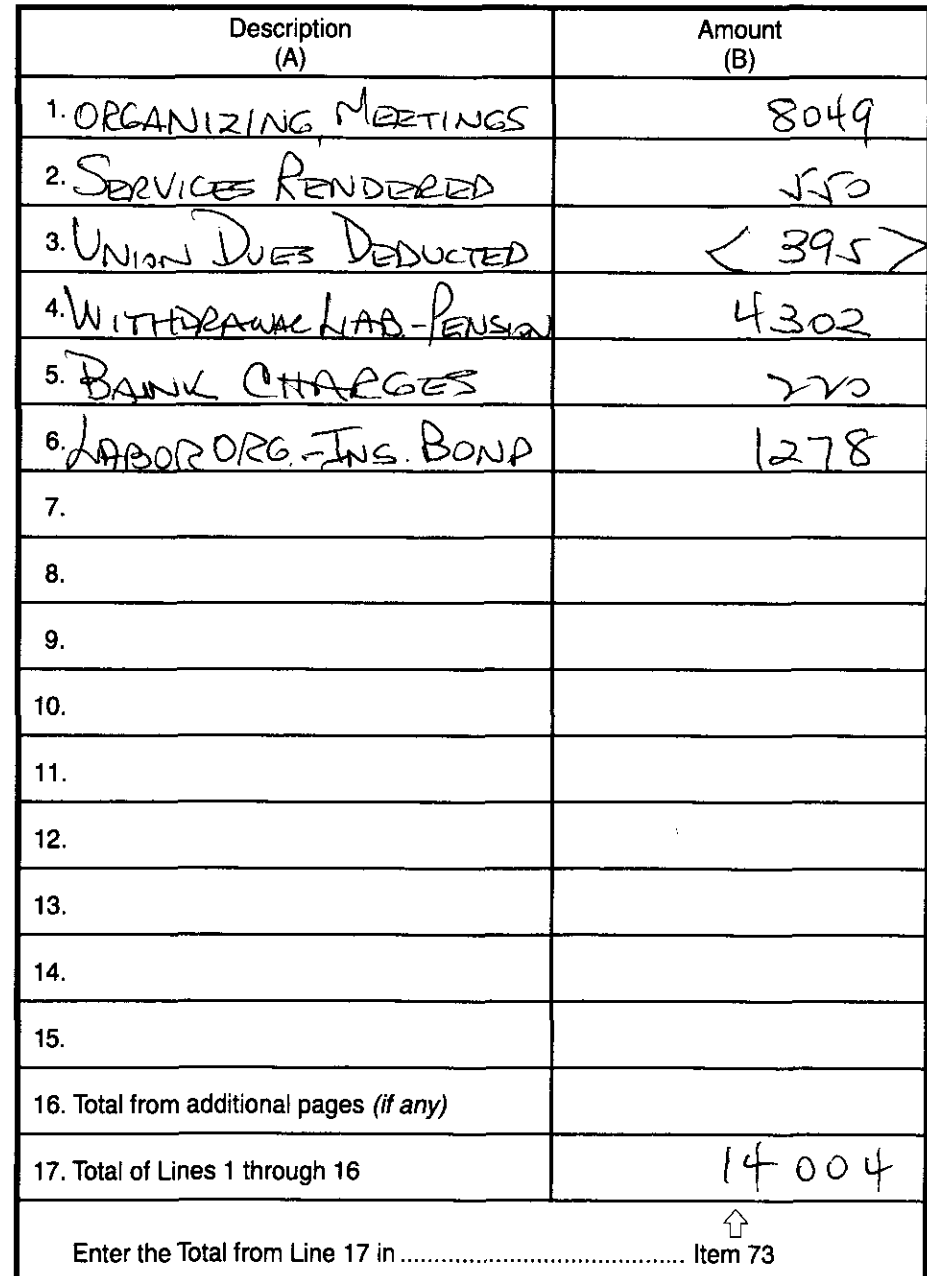 Description
(A)
Amount
(B)
1. ORGANIZING MEETINGS 8049
2. SERVICES RENDERED 550
3. UNION DUES DEDUCTED < 395 >
4. WITHDRAWAL LIAB-PENSION 4302
5. BANK CHARGES 220
6. LABOR ORG.-INS. BOND 1278
7.
8.
9.
10.
11.
12.
13.
14.
15.
16. Total from additional pages (if any)
17. Total of Lines 1 through 16 14 004
Enter the Total from Line 17 in ........................................ Item 73